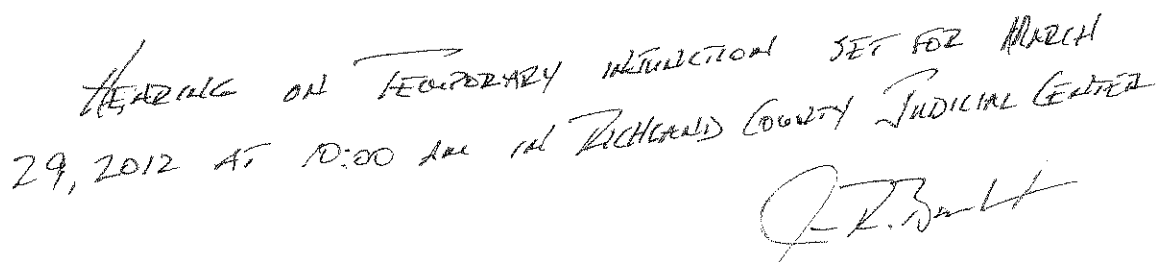 HEARING ON TEMPORARY INJUNCTION SET FOR MARCH
29, 2012 AT 10:00 AM IN RICHLAND COUNTY JUDICIAL CENTER